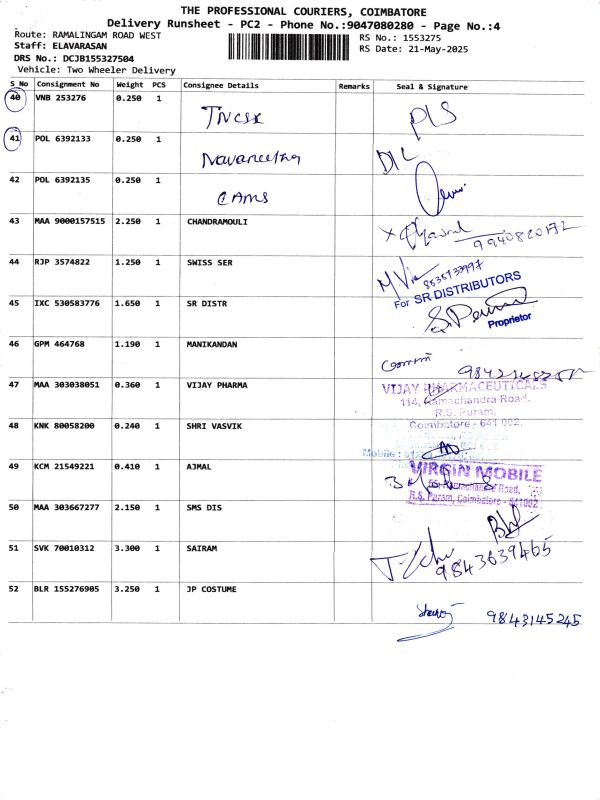 THE PROFESSIONAL COURIERS, COIMBATORE
Delivery Runsheet - PC2 - Phone No.:9047080280 - Page No.:4
Route: RAMALINGAM ROAD WEST
Staff: ELAVARASAN
DRS No.: DCJB155327504
Vehicle: Two Wheeler Delivery
RS No.: 1553275
RS Date: 21-May-2025
S No Consignment No Weight PCS Consignee Details Remarks Seal & Signature
40 VNB 253276 0.250 1 TNCSK PLS
41 POL 6392133 0.250 1 Navaneetha
42 POL 6392135 0.250 1 CAMS
43 MAA 9000157515 2.250 1 CHANDRAMOULI
9940820172
44 RJP 3574822 1.250 1 SWISS SER
45 IXC 530583776 1.650 1 SR DISTR
For SR DISTRIBUTORS
Proprietor
46 GPM 464768 1.190 1 MANIKANDAN
47 MAA 303038051 0.360 1 VIJAY PHARMA
VIJAY PHARMACEUTICALS
114, Ramachandra Road,
R.S. Puram,
Coimbatore - 641 002.
48 KNK 80058200 0.240 1 SHRI VASVIK
Mobile :
49 KCM 21549221 0.410 1 AJMAL
VIRGIN MOBILE
R.S. Puram, Coimbatore - 641002
50 MAA 303667277 2.150 1 SMS DIS
51 SVK 70010312 3.300 1 SAIRAM
9843639465
52 BLR 155276905 3.250 1 JP COSTUME
9843145245